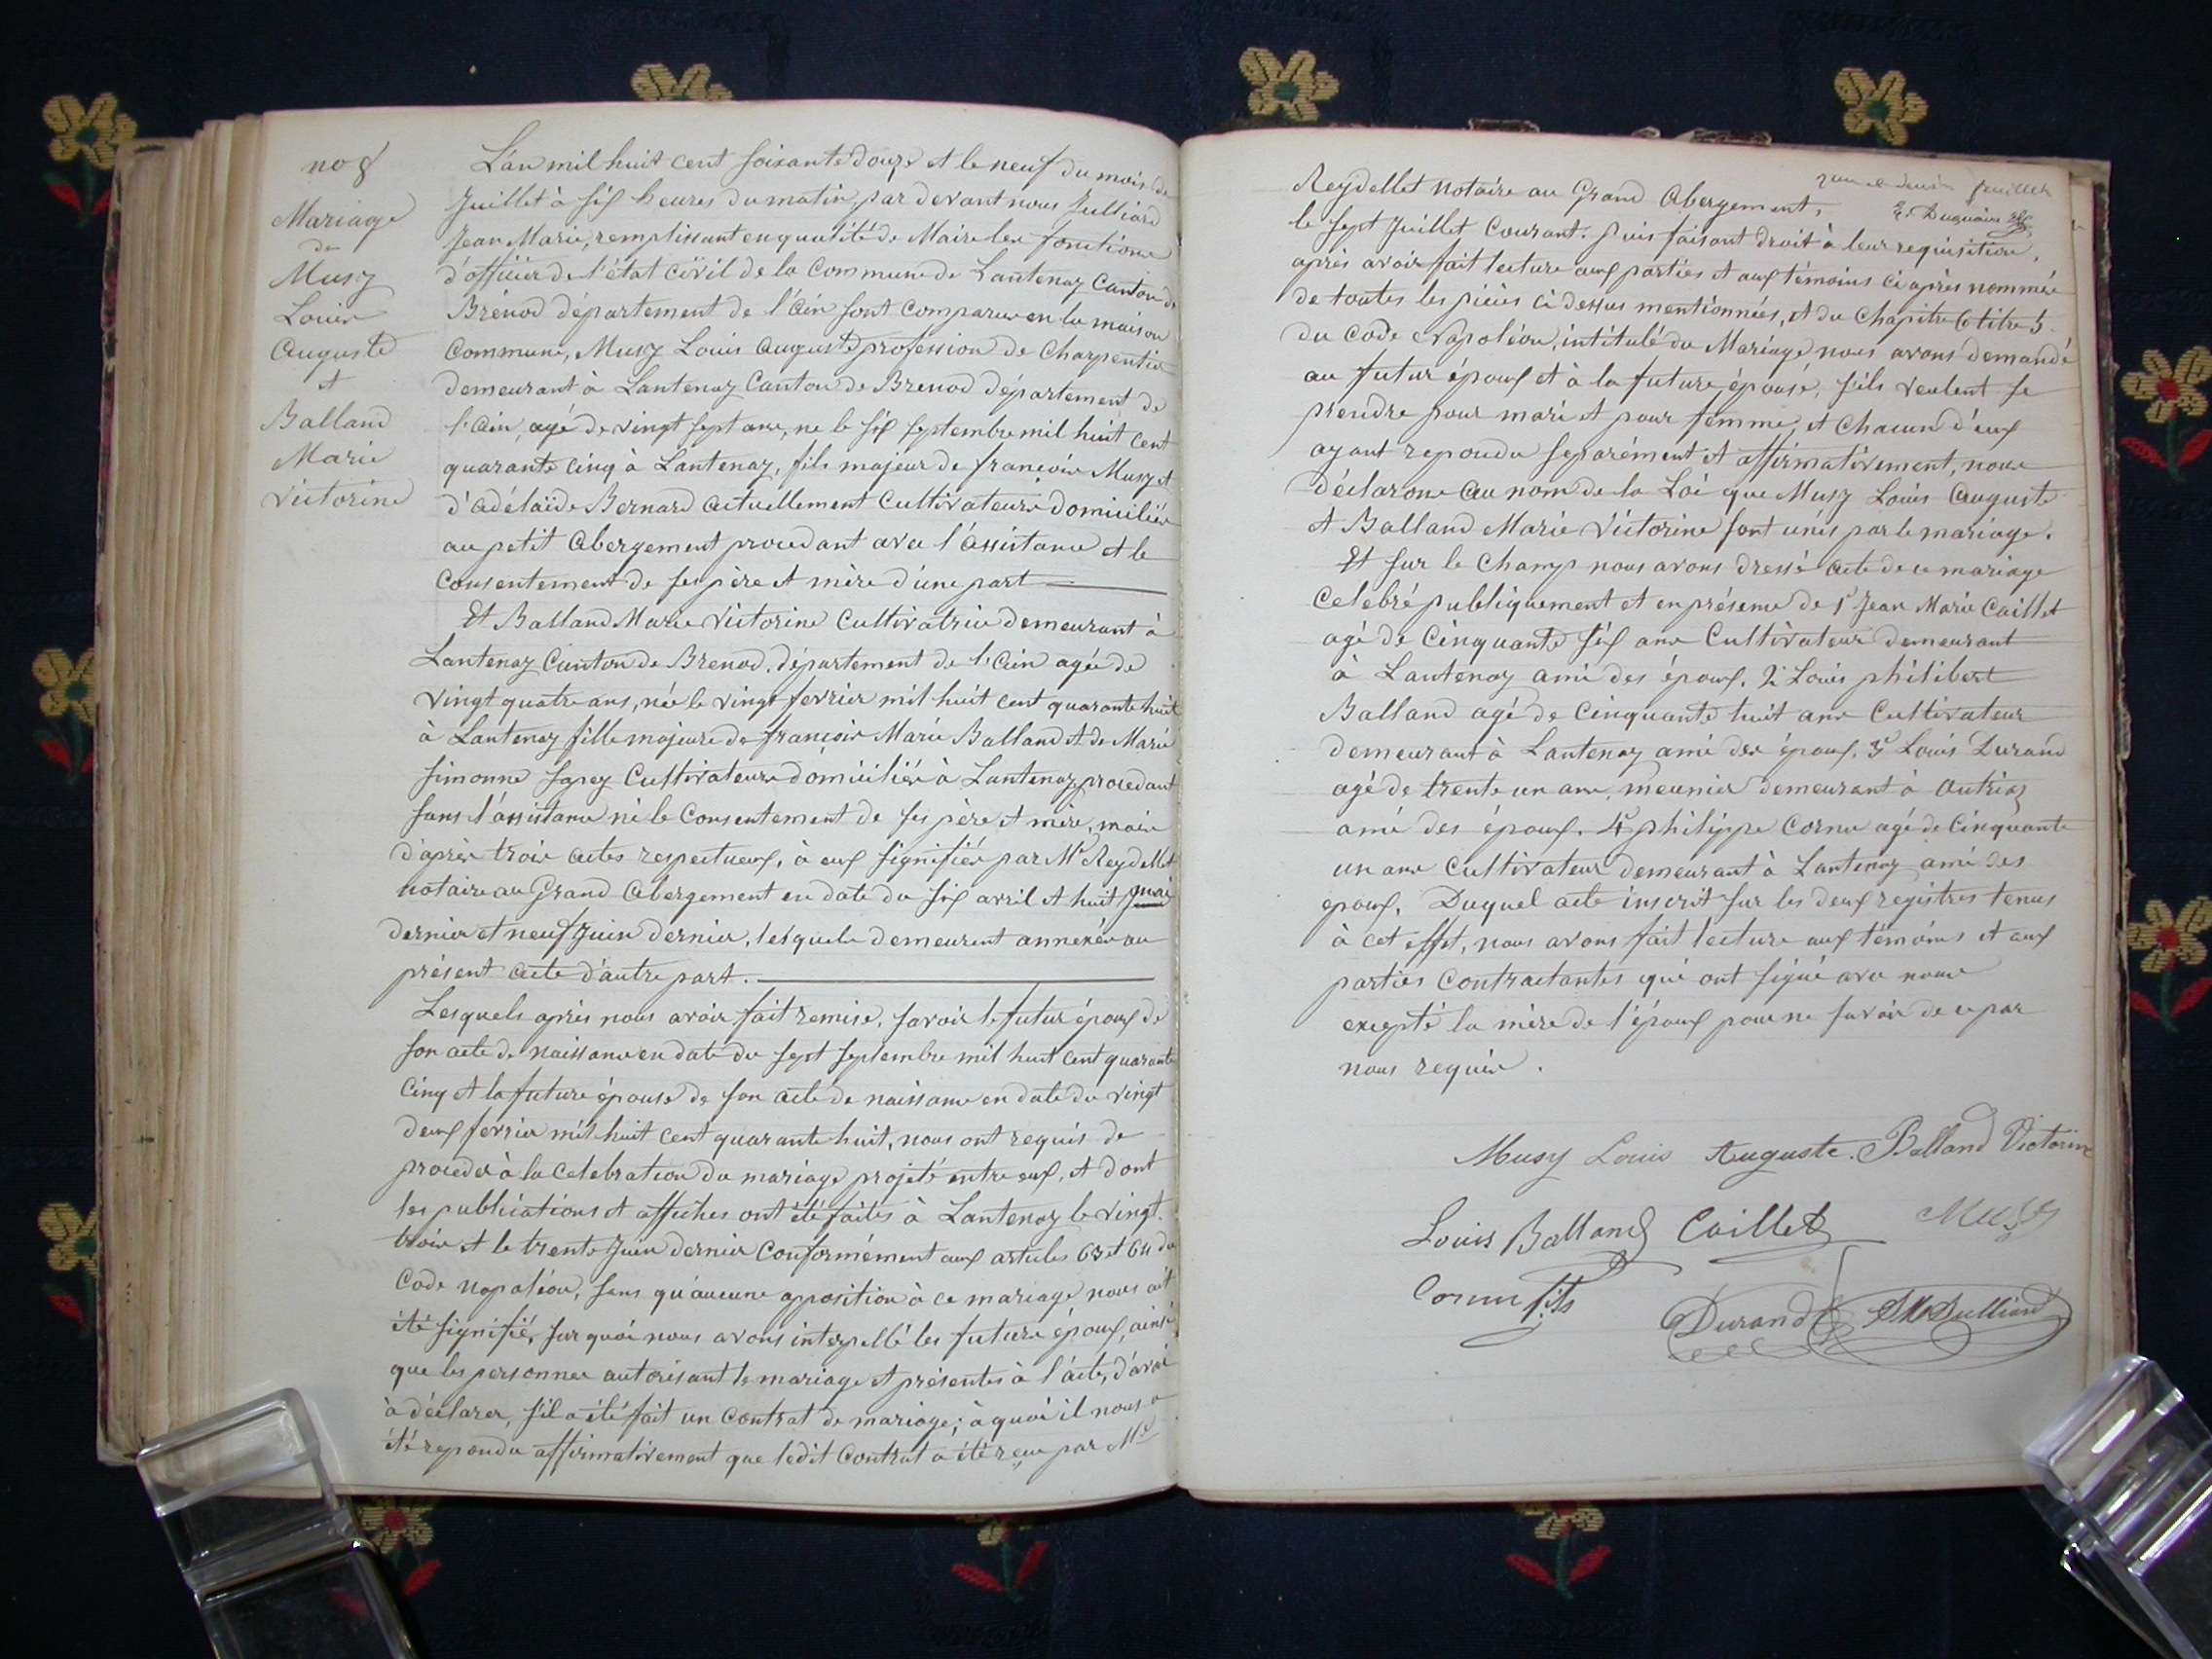 no 8
Mariage
de
Musy
Louis
Auguste
et
Balland
Marie
Victorine
L'an mil huit cent soixante douze et le neuf du mois de
Juillet à six heures du matin, par devant nous Julliard
Jean Marie, remplissant en qualité de Maire les fonctions
d'officier de l'état civil de la Commune de Lantenay Canton de
Brénod département de l'Ain sont comparus en la maison
Commune, Musy Louis Auguste profession de Charpentier
demeurant à Lantenay Canton de Brenod département de
l'Ain, agé de vingt sept ans, ne le six septembre mil huit cent
quarante cinq à Lantenay, fils majeur de françois Musy et
d'adélaïde Bernard actuellement Cultivateurs domiciliés
au petit Abergement procedant avec l'assistance et le
Consentement de ses père et mère d'une part
Et Balland Marie Victorine Cultivatrice demeurant à
Lantenay Canton de Brenod, département de l'Ain agée de
vingt quatre ans, née le vingt fevrier mil huit cent quarante huit
à Lantenay fille majeure de françois Marie Balland et de Marie
simonne Cultivateurs domiciliés à Lantenay procedant
sans l'assistance ni le Consentement de ses père et mère, mais
d'après trois actes respectueux, à eux signifiés par Me Reydellet
notaire au Grand Abergement en date du six avril et huit mai
dernier et neuf Juin dernier, lesquels demeurent annexés au
présent acte d'autre part.
Lesquels après nous avoir fait remise, savoir le futur époux de
son acte de naissance en date du sept septembre mil huit cent quarante
cinq et la future épouse de son acte de naissance en date du vingt
deux fevrier mil huit cent quarante huit, nous ont requis de
proceder à la celebration du mariage projeté entre eux, et dont
les publications et affiches ont été faites à Lantenay le vingt
trois et le trente Juin dernier Conformément aux articles 63 et 64 du
Code Napoléon, sans qu'aucune opposition à ce mariage nous ait
été signifié, sur quoi nous avons interpellé les futurs époux, ainsi
que les personnes autorisant le mariage et présentes à l'acte, d'avoir
à déclarer, s'il a été fait un Contrat de mariage; à quoi il nous a
été repondu affirmativement que ledit Contrat a été reçu par Me
Juillet
E. Duquaire
Reydellet notaire au Grand Abergement,
le sept Juillet Courant. Puis faisant droit à leur requisition,
après avoir fait lecture aux parties et aux témoins ci après nommés
de toutes les pièces ci dessus mentionnées, et du Chapitre 6 titre 5
du Code Napoléon, intitulé du Mariage nous avons demandé
au futur époux et à la future épouse, s'ils veulent se
prendre pour mari et pour femme, et Chacun d'eux
ayant repondu separément et affirmativement, nous
déclarons au nom de la Loi que Musy Louis Auguste
et Balland Marie Victorine sont unis par le mariage.
Et sur le Champ nous avons dressé acte de ce mariage
Celebré publiquement et en présence de 1° Jean Marie Caillet
agé de Cinquante six ans Cultivateur demeurant
à Lantenay ami des époux. 2° Louis philibert
Balland agé de Cinquante huit ans Cultivateur
demeurant à Lantenay ami des époux. 3° Louis Durand
agé de trente un ans, meunier demeurant à Outriaz
ami des époux. 4° philippe Cornu agé de Cinquante
un ans Cultivateur demeurant à Lantenay ami des
epoux. Duquel acte inscrit sur les deux registres tenus
à cet effet, nous avons fait lecture aux témoins et aux
parties Contractantes qui ont signé avec nous
excepté la mère de l'époux pour ne savoir de ce par
nous requise.
Musy Louis Auguste. Balland Victorine
Louis Balland Caillet Musy
Cornu fils Durand JM Julliard